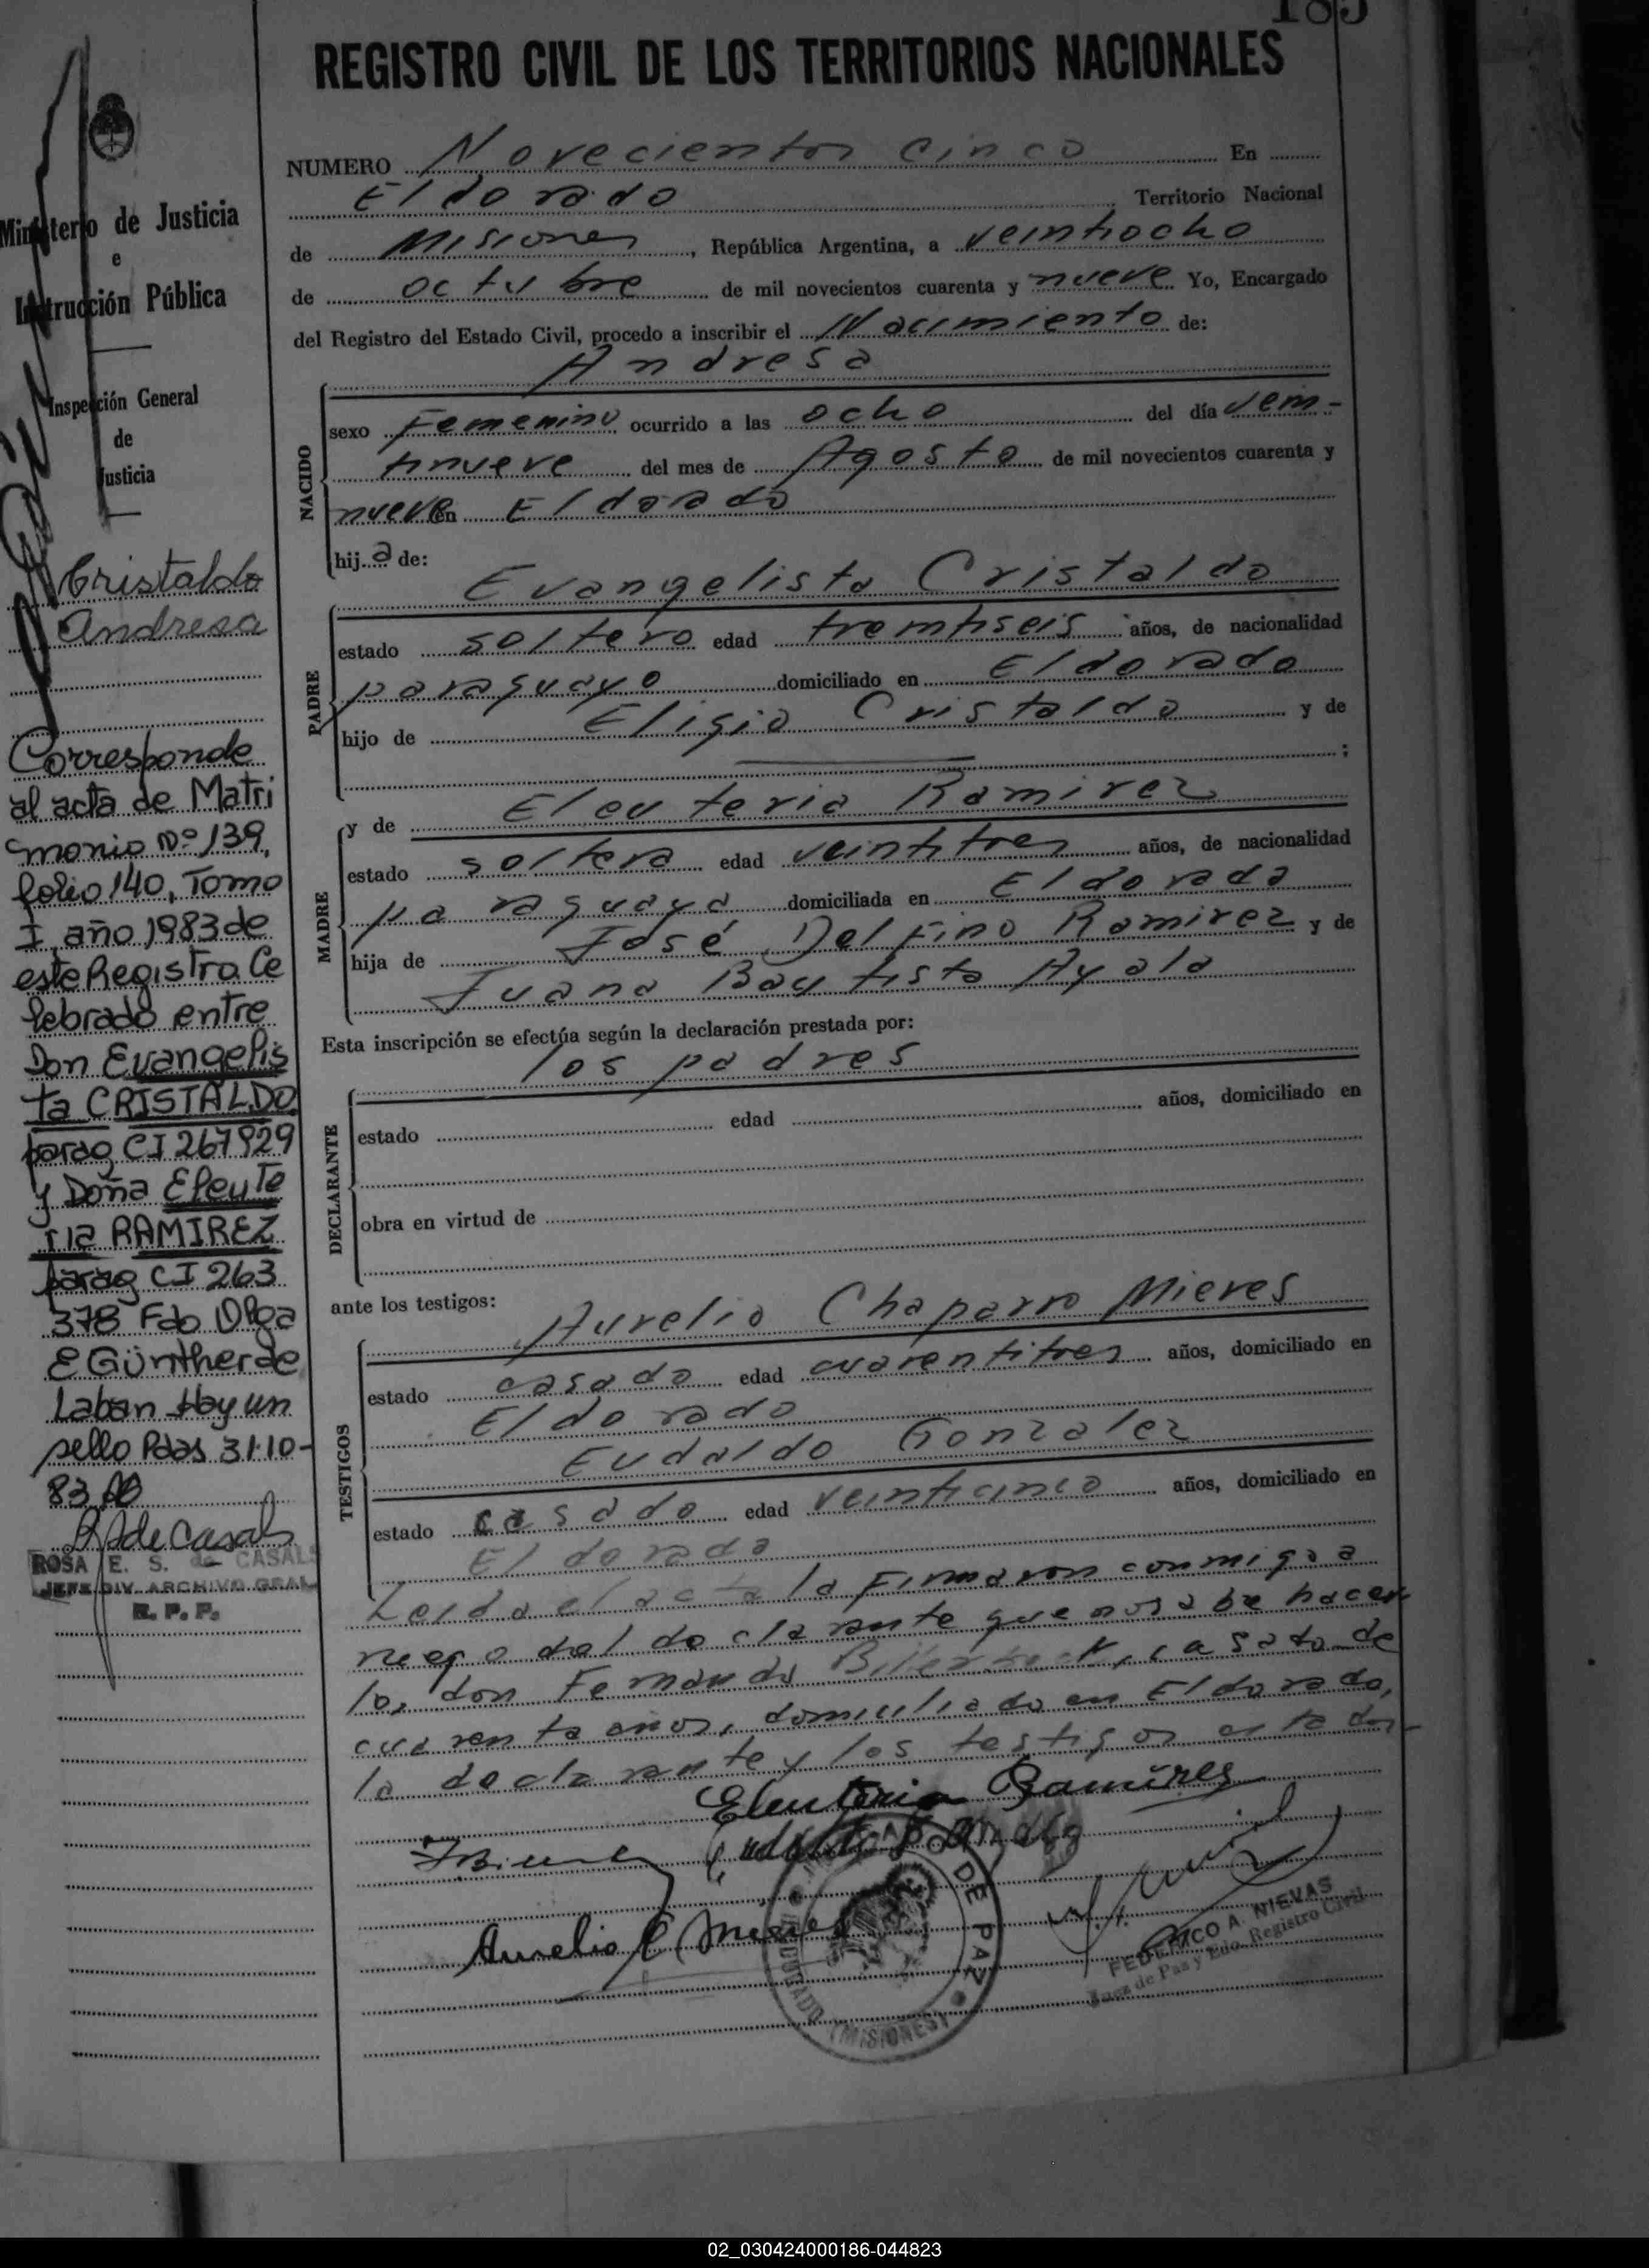 185
REGISTRO CIVIL DE LOS TERRITORIOS NACIONALES
NUMERO Novecientos cinco En
Eldorado Territorio Nacional
de Misiones, República Argentina, a veintiocho
de octubre de mil novecientos cuarenta y nueve Yo, Encargado
del Registro del Estado Civil, procedo a inscribir el Nacimiento de:
Andresa
NACIDO
sexo Femenino ocurrido a las ocho del día vein-
tinueve del mes de Agosto de mil novecientos cuarenta y
nueve en Eldorado
hija de:
Evangelista Cristaldo
PADRE
estado soltero edad treintiseis años, de nacionalidad
paraguayo domiciliado en Eldorado
hijo de Eligio Cristaldo y de
;
y de Eleuteria Ramirez
MADRE
estado soltera edad veintitres años, de nacionalidad
paraguaya domiciliada en Eldorado
hija de José Delfino Ramirez y de
Juana Bautista Ayala
Esta inscripción se efectúa según la declaración prestada por:
los padres
DECLARANTE
estado edad años, domiciliado en
obra en virtud de
ante los testigos:
Aurelio Chaparro Mieres
TESTIGOS
estado casado edad cuarentitres años, domiciliado en
Eldorado
Eudaldo Gonzalez
estado casado edad veinticinco años, domiciliado en
Eldorado
Leida el acta la firmaron conmigo a
ruego del declarante que no sabe hacer
lo, don Fernando casado de
cuarenta años, domiciliado en Eldorado,
la declarante y los testigos citados-
Eleuteria Ramires
Aurelio C Mieres
JUZGADO DE PAZ
(MISIONES)
FEDERICO A. NIEVAS
Juez de Paz y Edo. Registro Civil
Ministerio de Justicia
e
Instrucción Pública
Inspección General
de
Justicia
Cristaldo
Andresa
Corresponde
al acta de Matri
monio Nº 139,
folio 140, Tomo
I, año 1983 de
este Registro. Ce
lebrado entre
Don Evangelis
ta CRISTALDO
parag CI 267929
y Doña Eleute
ria RAMIREZ
parag CI 263
378 Fdo Olga
E Güntherde
Laban Hay un
sello Pdas 31-10-
83
RSdeCasals
ROSA E. S. de CASALS
JEFE DIV. ARCHIVO GRAL
R. P. P.
02_030424000186-044823